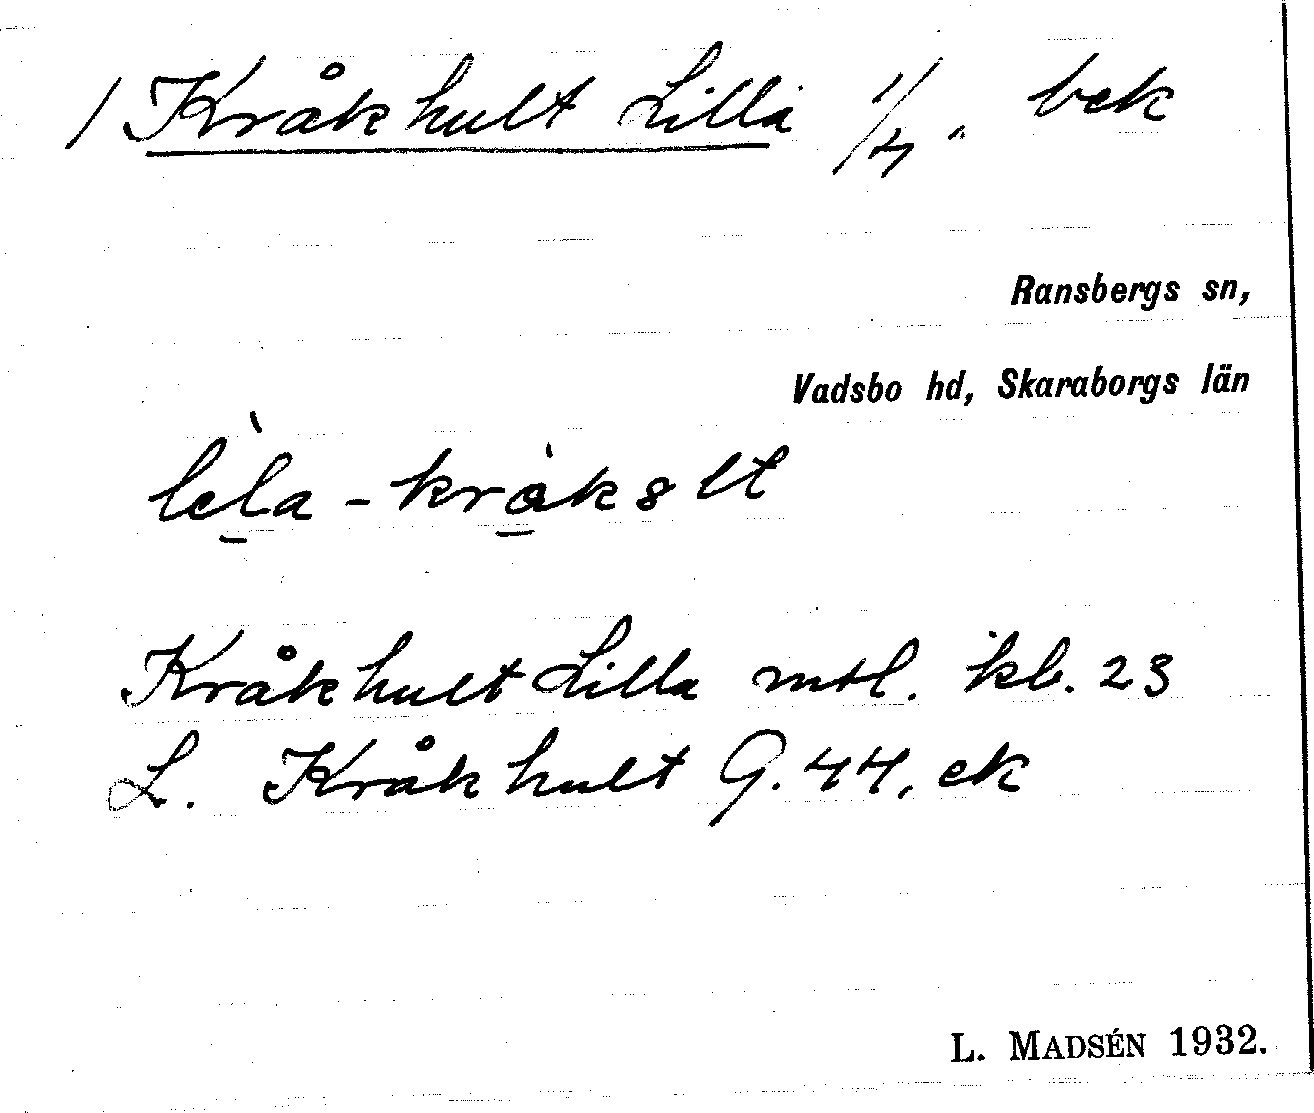 / Kråkhult Lilla 1/4. bek
Ransbergs sn,
Vadsbo hd, Skaraborgs län
lela - kråkslt
Kråkhult Lilla mtl. kb. 23
L. Kråkhult G. 44, ek
L. MADSÉN 1932.